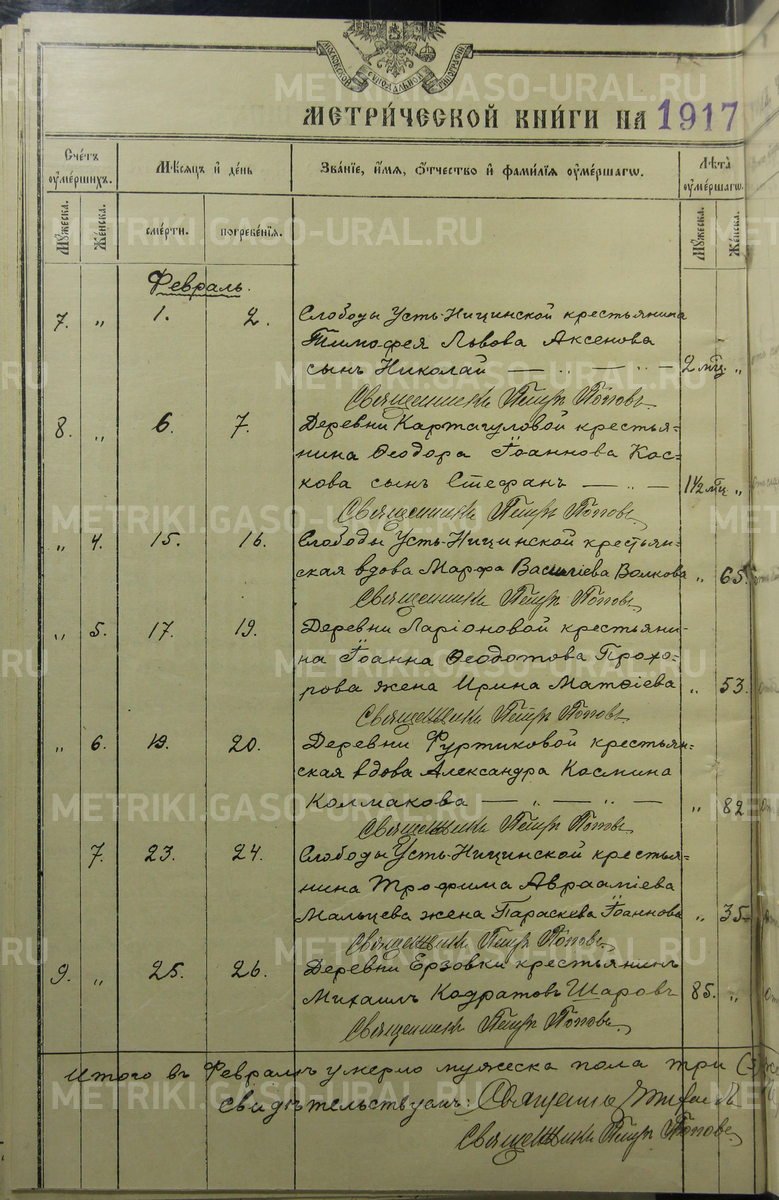 МОСКОВСКОЙ СѴНОДАЛЬНОЙ ТИПОГРАФІИ
МЕТРИ́ЧЕСКОЙ КНИ́ГИ НА 1917
Сче́тъ ᲂу҆ме́ршихъ. Мѣ́сѧцъ и҆ де́нь Зва́нїе, и҆́мѧ, ѻ҆́тчество и҆ фами́лїѧ ᲂу҆ме́ршагѡ. Лѣ́та ᲂу҆ме́ршагѡ.
Мꙋ́жеска. Же́нска. сме́рти. погребе́нїѧ. Мꙋ́жеска. Же́нска.
Февраль.
7. „ 1. 2. Слободы Усть-Ницинской крестьянина
Тимофея Львова Аксенова
сынъ Николай 2 мѣц. „
Священникъ Петръ Поповъ
8. „ 6. 7. Деревни Картагуловой крестья-
нина Ѳеодора Іоаннова Кос-
кова сынъ Стефанъ 1 1/2 мѣц „
Священникъ Петръ Поповъ
„ 4. 15. 16. Слободы Усть-Ницинской крестьян-
ская вдова Марфа Василіева Волкова „ 65.
Священникъ Петръ Поповъ
„ 5. 17. 19. Деревни Ларіоновой крестьяни-
на Іоанна Ѳеодотова Прохо-
рова жена Ирина Матѳіева „ 53.
Священникъ Петръ Поповъ
„ 6. 19. 20. Деревни Фуртиковой крестьян-
ская вдова Александра Космина
Колмакова „ 82
Священникъ Петръ Поповъ
7. 23. 24. Слободы Усть-Ницинской крестья-
нина Трофима Авраамiева
Мальцева жена Параскева Іоаннова „ 35.
Священникъ Петръ Поповъ
9. „ 25. 26. Деревни Ерзовки крестьянинъ
Михаилъ Кодратовъ Шаровъ 85. „
Священникъ Петръ Поповъ
Итого въ Февралѣ умерло мужеска пола три (3)
свидѣтельствуемъ: Священникъ
Священникъ Петръ Поповъ
METRIKI.GASO-URAL.RU